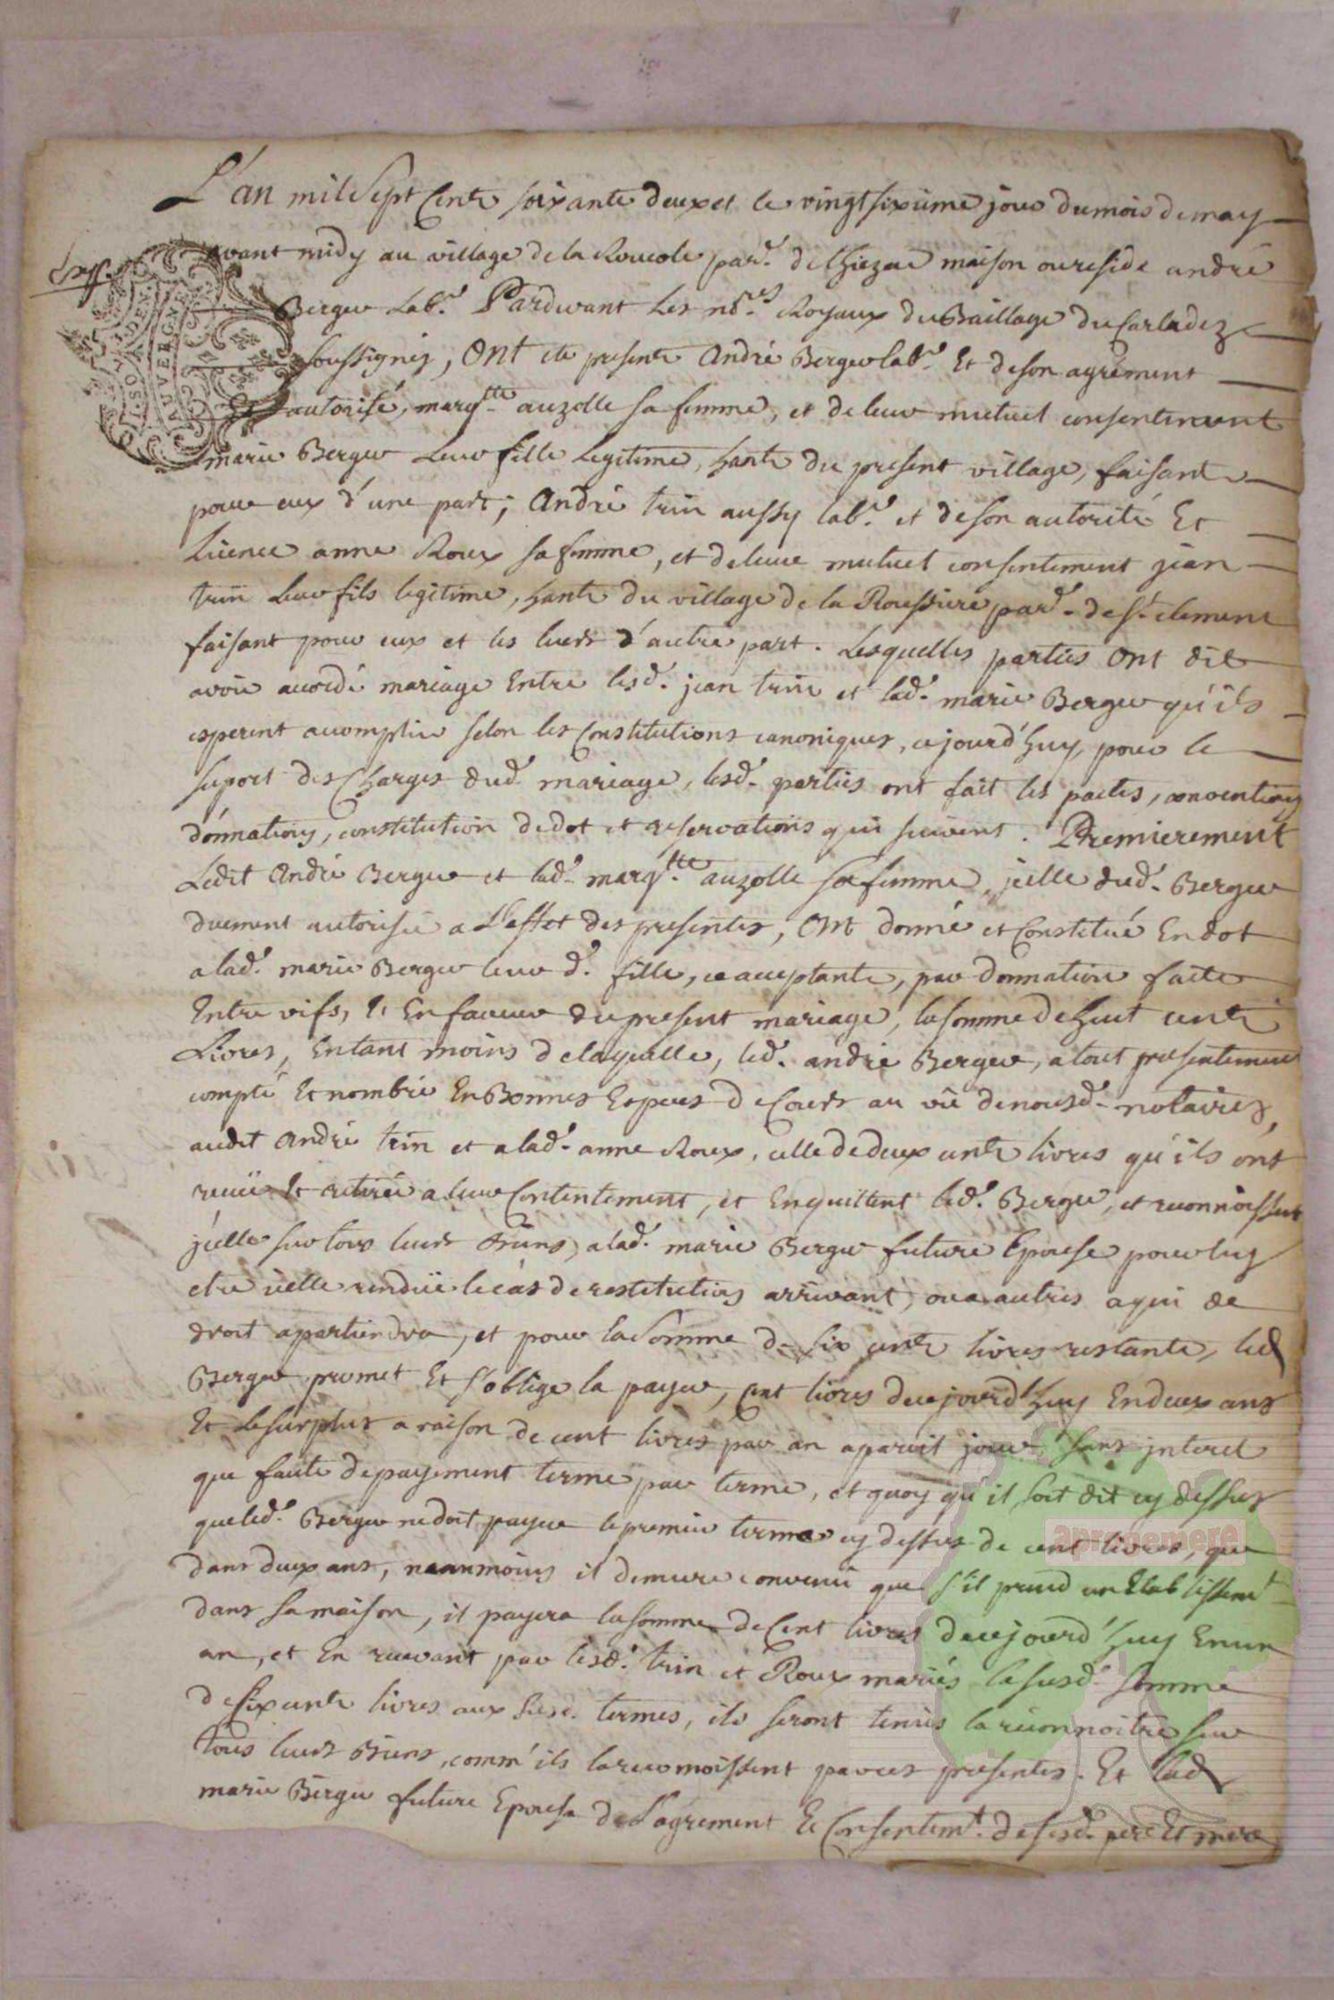 L'an mil sept Cents soixante deux et le vingt sixieme jour du mois de may
avant midy au village de la Roucole par.e de Thiezac maison ou reside andré
Berger Lab.r Pardevant Les no.res Royaux du Bailliage du Carladez
soussignés, Ont eté presents André Berger lab.r Et de son agrement
autorisé, marg.tte auzolle sa femme, et de leur mutuel consentement
marie Berger Leur fille Legitime, hants du present village, faisant
pour eux d'une part; André trin aussy lab.r et de son autorité Et
Licence anne Roux sa femme, et de leur mutuel consentement jean
trin Leur fils legitime, hants du village de la Roussiere par.e de S.t clement
faisant pour eux et les leurs d'autre part. Lesquelles parties ont dit
avoir accordé mariage Entre lesd. jean trin et lad. marie Berger qu'ils
esperent accomplir selon les Constitutions canoniques, cejourd'huy, pour le
suport des Charges dud. mariage, lesd. parties ont fait les pactes, conventions
donnations, constitution de dot et reservations qui suivent. Premierement
Ledit André Berger et lad. marg.tte auzolle sa femme, jcelle dud. Berger
duement autorisée a L'effet des presentes, Ont donné et Constitué En dot
a lad. marie Berger leur d. fille, ce acceptante, par donnation faite
Entre vifs, Et En faveur du present mariage, la somme de huit cents
Livres, En tant moins de laquelle, led. andré Berger, a tout presentement
compté Et nombré En Bonnes Especes de Cours au vû de nousd. notaires,
audit André trin et a lad. anne Roux, celle de deux cents livres qu'ils ont
reçue Et retirée a leur Contentement, et En quittent led. Berger, et reconnoissent
jcelle sur tous leurs Biens, a lad. marie Berger future Epouse pour luy
etre jcelle rendüe le cas de restitution arrivant, ou a autres a qui de
droit apartiendra, et pour la somme de six cents livres restante, led
Berger promet Et s'oblige la payer, Cent livres de cejourd'huy En deux ans
Et Le surplus a raison de cent livres par an a pareil jour, sans jnteret
que faute de payement terme par terme, et quoy qu'il soit dit cy dessus
que led. Berger ne doit payer le premier terme cy dessus de cent livres, que
dans deux ans, neanmoins il demeure convenu que s'il prend un Etablissem.t
dans sa maison, il payera la somme de Cent livres de cejourd'huy En un
an, et En recevant par lesd. trin et Roux mariés la susd. somme
de six cents livres aux susd. termes, ils seront tenus la reconnoitre sur
tous leurs Biens, comm' ils la reconnoissent par ces presentes. Et lad
marie Berger future Epouse de L'agrement Et Consentem.t de sesd. pere Et mere
apragemere
AUVERGNE